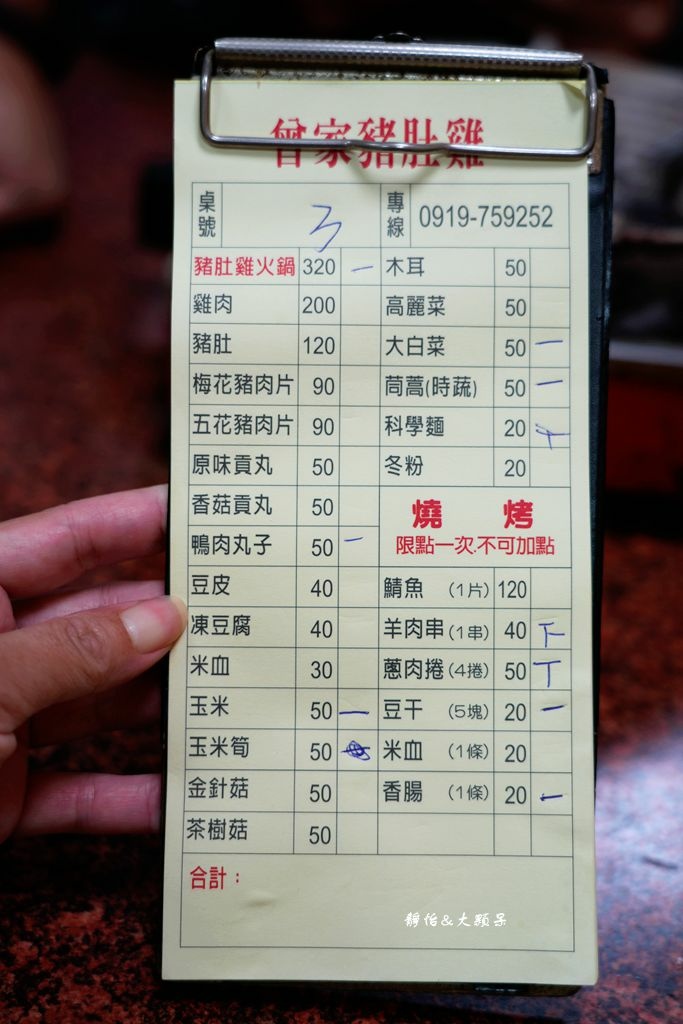 曾家豬肚雞
桌號 3 專線 0919-759252
豬肚雞火鍋 320 一 木耳 50
雞肉 200 高麗菜 50
豬肚 120 大白菜 50 一
梅花豬肉片 90 茼蒿(時蔬) 50 一
五花豬肉片 90 科學麵 20
原味貢丸 50 冬粉 20
香菇貢丸 50 燒 烤
鴨肉丸子 50 一 限點一次.不可加點
豆皮 40 鯖魚 (1片) 120
凍豆腐 40 羊肉串(1串) 40 下
米血 30 蔥肉捲(4捲) 50 丅
玉米 50 一 豆干 (5塊) 20 一
玉米筍 50 米血 (1條) 20
金針菇 50 香腸 (1條) 20 一
茶樹菇 50
合計：
靜怡&大顆呆